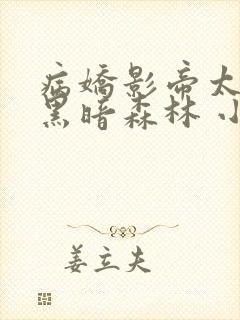 病嬌影帝太
黑暗森林 小
姜立夫